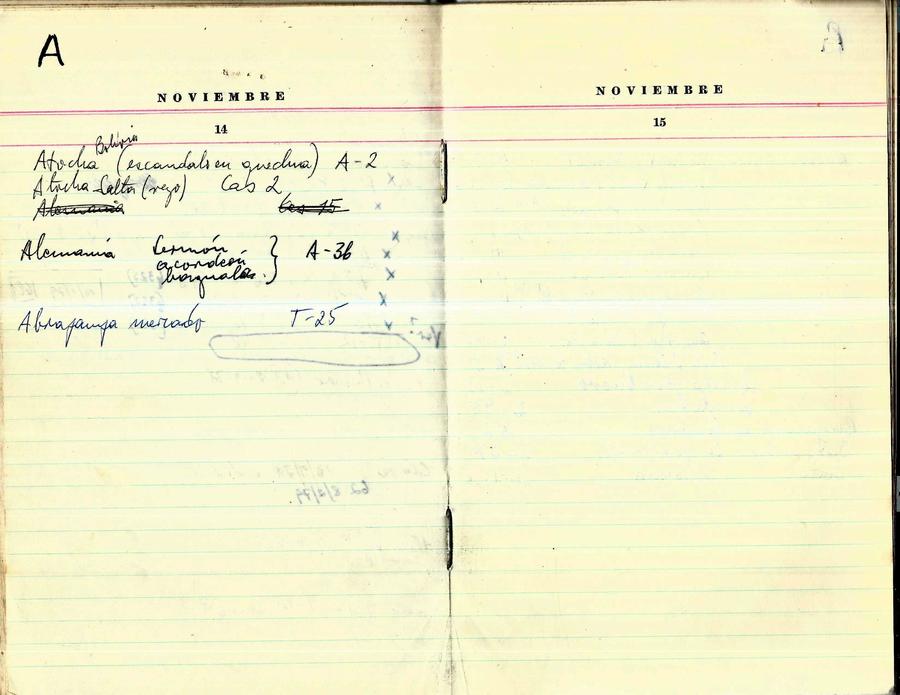 A
NOVIEMBRE
14
Bolivia
Atocha (escandalo en quechua) A-2
Atocha Salta (rezo) Cas 2
Alemania Cas 15
Alemania Sermón
acordeón
baguala. } A-36
Abrapampa mercado T-25
NOVIEMBRE
15